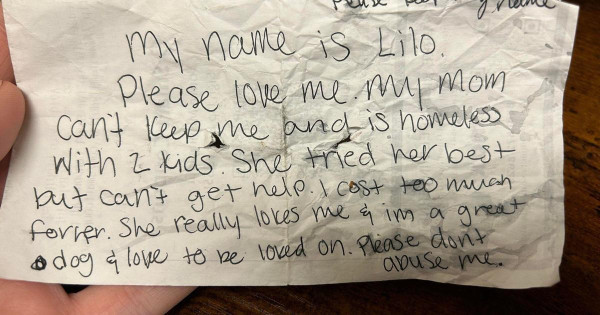 Please keep my name
My name is Lilo.
Please love me. My mom
can't keep me and is homeless
with 2 kids. She tried her best
but can't get help. I cost too much
for her. She really loves me & im a great
dog & love to be loved on. Please don't
abuse me.